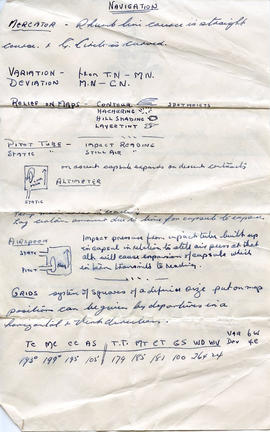 NAVIGATION
MERCATOR - Rhumb line course is straight
course. & G. Circle is curved.
VARIATION - from T.N - M.N.
DEVIATION M.N - C.N.
RELIEF ON MAPS - CONTOUR SPOT HEIGHTS
HACHERING
HILL SHADING
LAYER TINT
PIVOT TUBE - IMPACT READING
STATIC " STILL AIR "
on ascent capsule expands on descent contracts
ALTIMETER
STATIC
Lag certain amount due to time for capsule to expand.
AIRSPEED
STATIC
PIVOT
Impact pressure from impact tube built up
in capsul in relation to still air press at that
alt will cause expansion of capsule which
in turn transmits to reading.
GRIDS system of squares of a definite size put on map
position can be given by departures in a
horizontal & Vert direction.
VAR 6W
TC MC CC AS T.T. MT CT GS WD WV DEV 4E
193° 199° 195 105 179 185 181 100 264 24